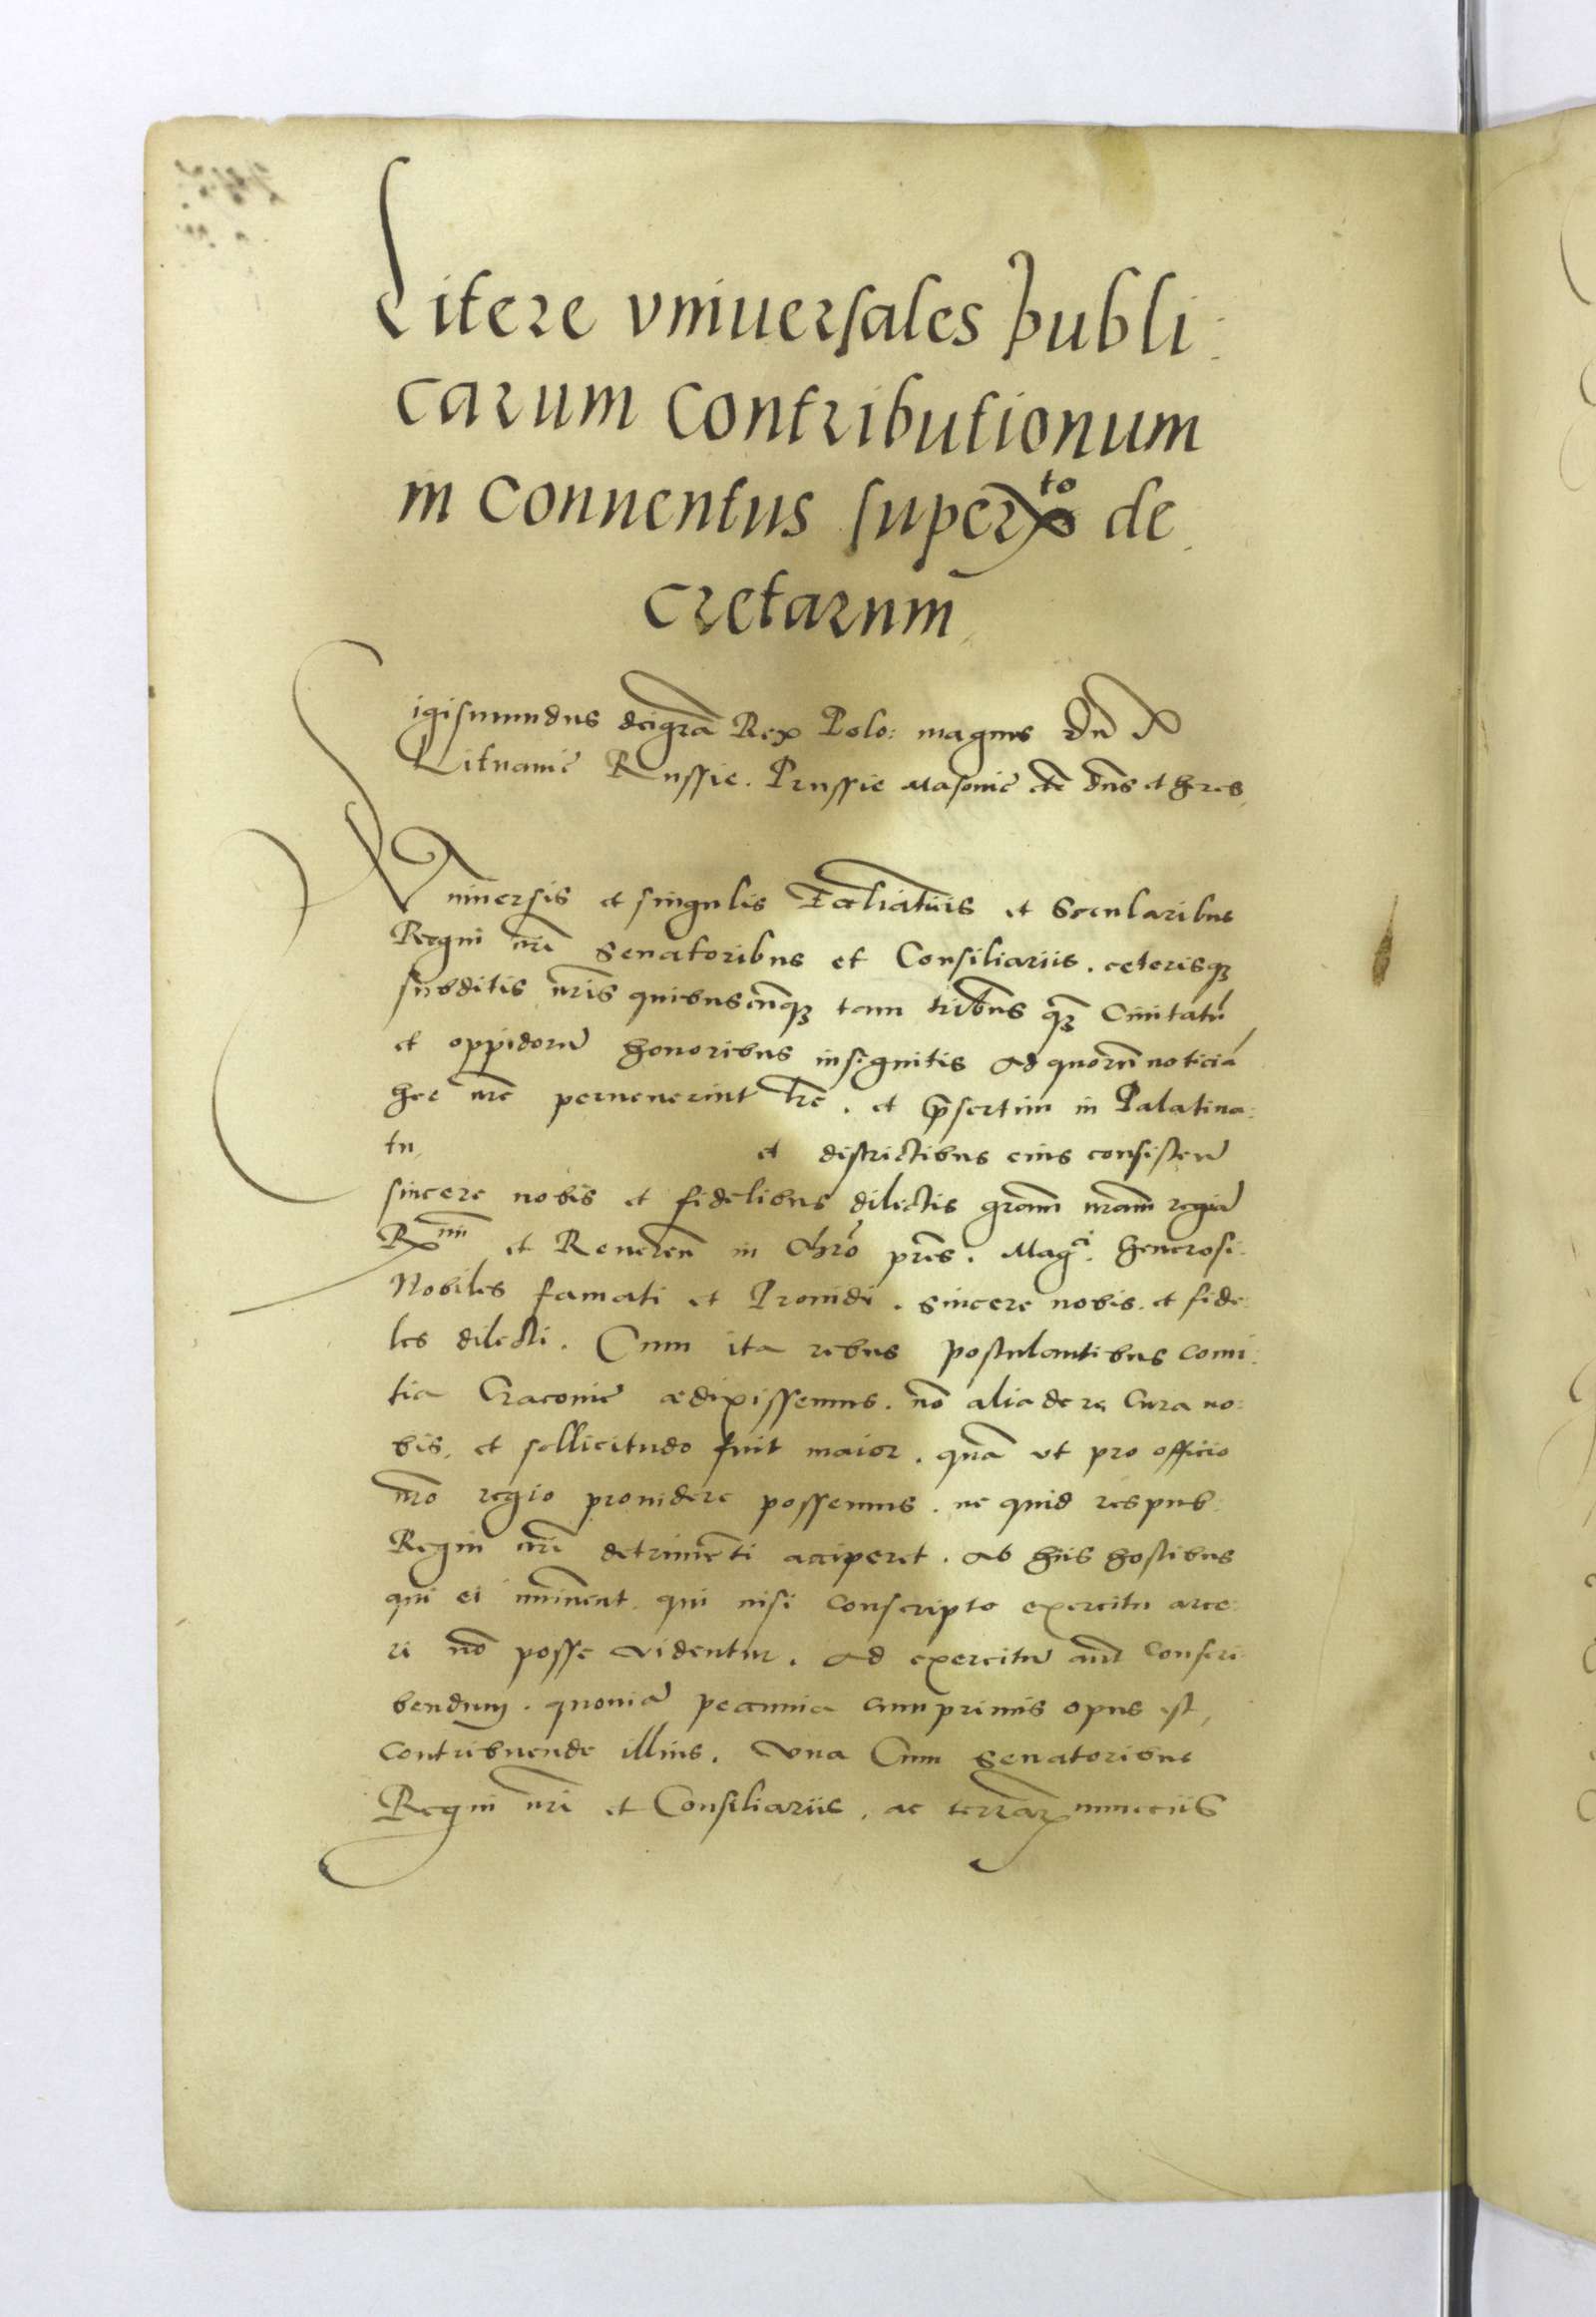 Litere vniuersales publi
carum contributionum
in conuentus super de
cretarum
Sigismundus dei gra Rex Polo: magnus
Lituanie Russie. Prussie Masouie etc dns et hres
Vniuersis et singulis et Secularibus
Regni nri Senatoribus et Consiliariis. ceterisq
subditis nris quibuscunq tam qz Ciuitatu
et oppidoru honoribus insignitis Ad quoru noticia
hee nre peruenerint lre. et psertim in Palatina:
tu et districtibus eius consisten
sincere nobis et fidelibus dilectis gram nram regia
Rmi et Reueren in Chro pres. Magci. Generosi.
Nobiles famati et Prouidi. sincere nobis. et fide:
les dilecti. Cum ita rebus postulantibus comi:
tia Cracouie ædixissemus. no alia de re Cura no:
bis. et sollicitudo fuit maior. qua vt pro officio
nro regio prouidere possemus. ne quid respub:
Regni nri detrimeti acciperet. Ab hiis hostibus
qui ei iminent. qui nisi conscripto exercitu arce:
ri no posse videntur. Ad exercitu aut conscri
bendum. quonia pecunia cumprimis opus est,
contribuende illius. Vna Cum Senatoribus
Regni nri et Consiliariis, ac terrar nuncciis